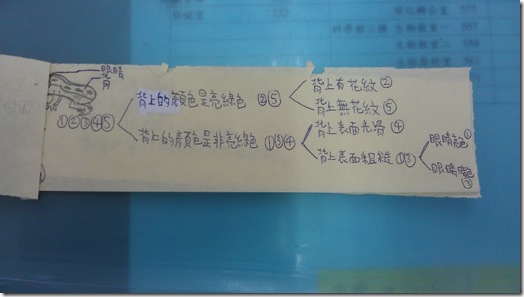 眼睛
背
①②③④⑤
背上的顏色是亮綠色 ②⑤
背上有花紋 ②
背上無花紋 ⑤
背上的顏色是非亮綠色 ①③④
背上表面光滑 ④
背上表面粗糙 ①③
眼睛
眼睛